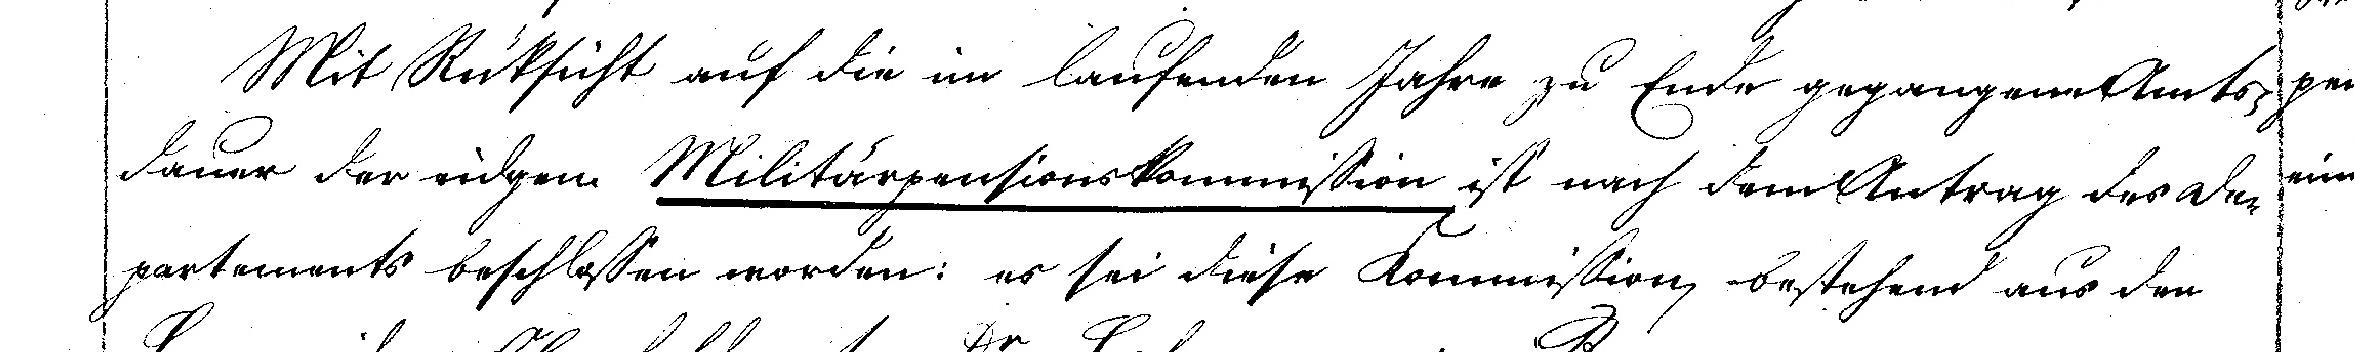 Mit Rüksicht auf die im laufenden Jahre zu Ende gegangene Amts-
dauer der eidgen. Militärpensionskommission ist nach dem Antrag des De-
partements beschlossen worden: es sei diese Kommission, bestehend aus den